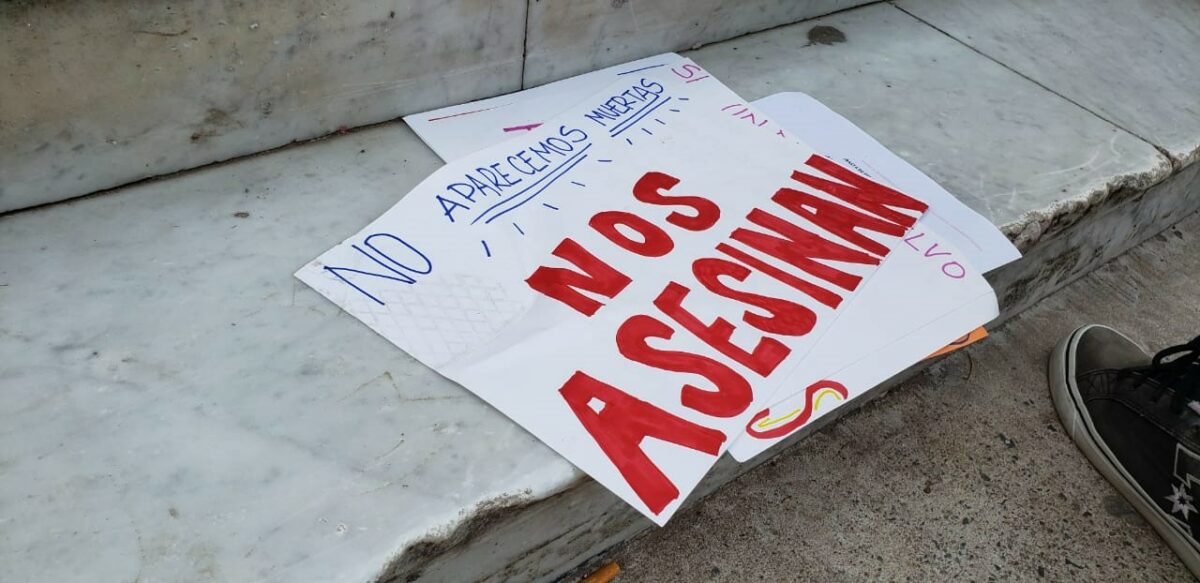 NO APARECEMOS MUERTAS
NOS
ASESINAN